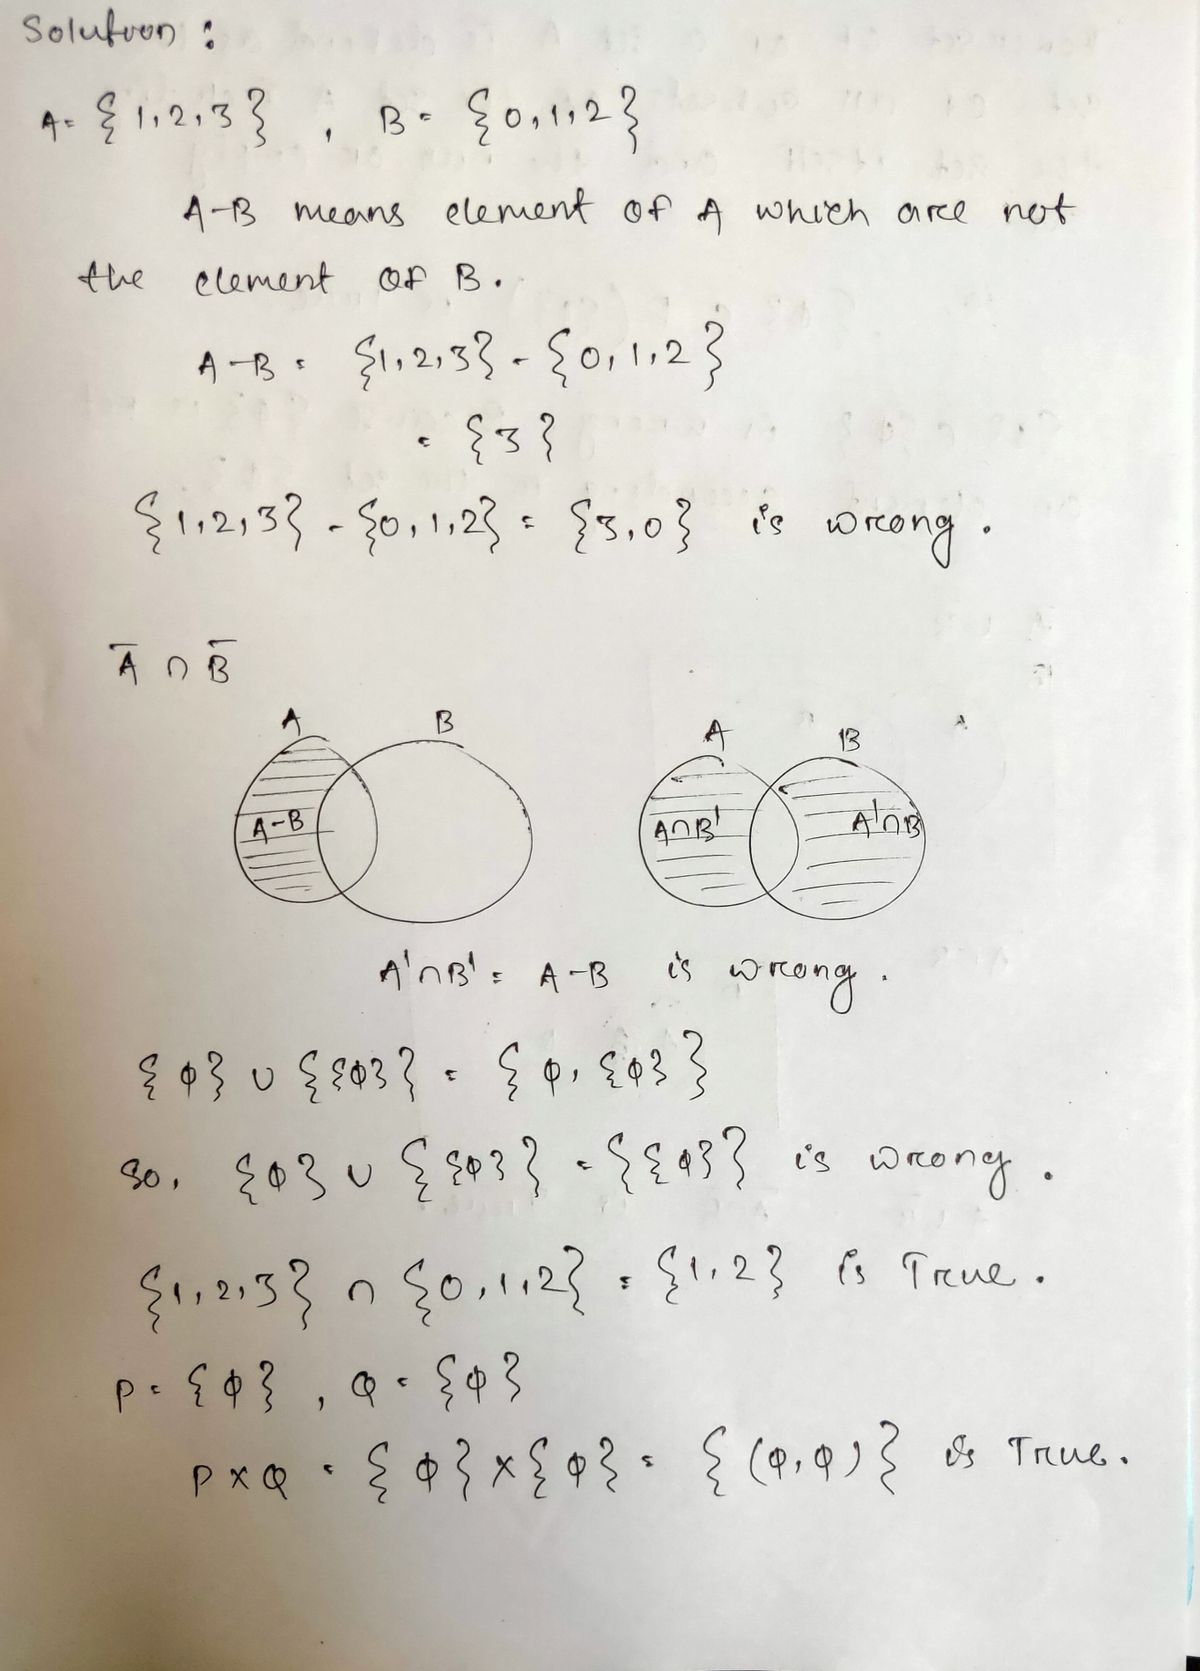 Solution :
A = {1,2,3} , B = {0,1,2}
A-B means element of A which are not
the element of B.
A-B = {1,2,3} - {0,1,2}
= {3}
{1,2,3} - {0,1,2} = {3,0} is wrong.
A̅ ∩ B̅
A B A B
A-B A∩B' A'∩B
A'∩B' = A-B is wrong.
{ϕ} ∪ {{ϕ}} = {ϕ, {ϕ}}
So, {ϕ} ∪ {{ϕ}} = {{ϕ}} is wrong.
{1,2,3} ∩ {0,1,2} = {1,2} is True.
P = {ϕ} , Q = {ϕ}
P×Q = {ϕ}×{ϕ} = {(ϕ,ϕ)} is True.